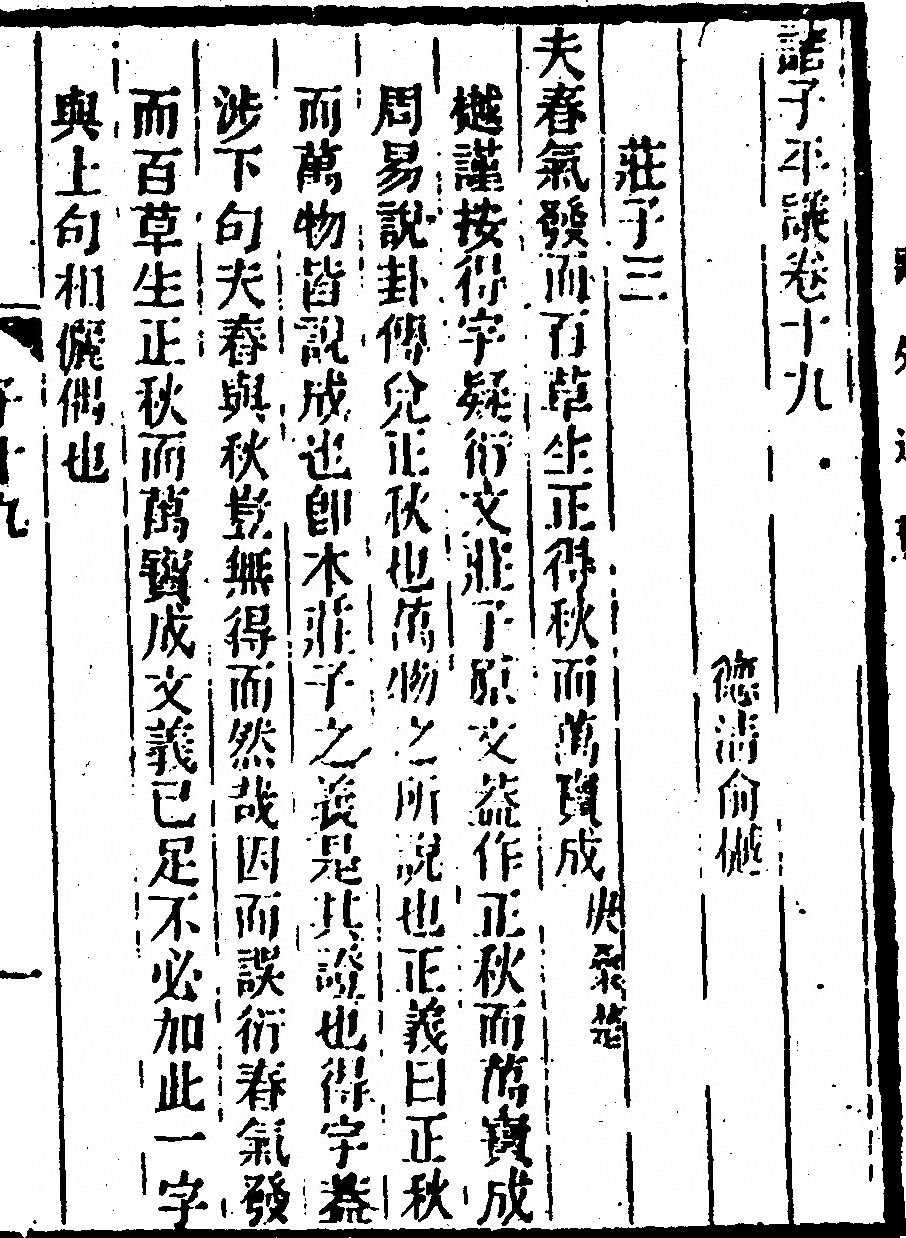 諸子平議卷十九
德清俞樾
莊子三
夫春氣發而百草生正得秋而萬寶成 庚桑楚
樾謹按得字疑衍文莊子原文葢作正秋而萬寶成
周易說卦傳兌正秋也萬物之所說也正義曰正秋
而萬物皆說成也卽本莊子之義是其證也得字葢
涉下句夫春與秋豈無得而然哉因而誤衍春氣發
而百草生正秋而萬寶成文義已足不必加此一字
與上句相儷偶也
子十九
一